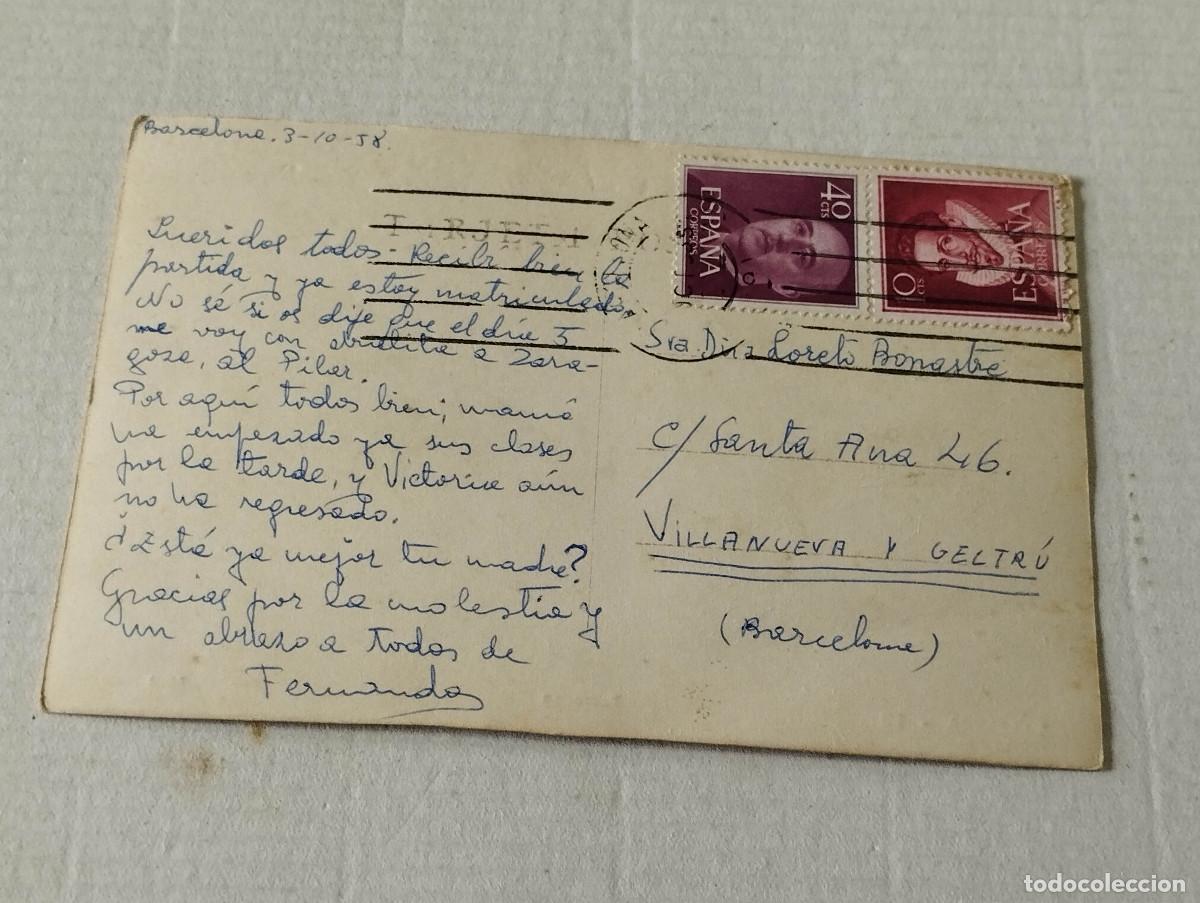 Barcelona. 3-10-58.
TARJETA
Queridos todos: Recibí bien la
partida y ya estoy matriculado.
No sé si os dije que el día 5
me voy con abuelita a Zara-
goza, al Pilar.
Por aquí todos bien; mamá
ha empezado ya sus clases
por la tarde, y Victoria aún
no ha regresado.
¿Está ya mejor tu madre?
Gracias por la molestia y
un abrazo a todos de
Fernando
40 CTS
ESPAÑA
CORREOS
10 CTS
ESPAÑA
CORREOS
Sra. Dña Loreto Bonastre
C/ Santa Ana 46.
VILLANUEVA Y GELTRÚ
(Barcelona)
todocoleccion